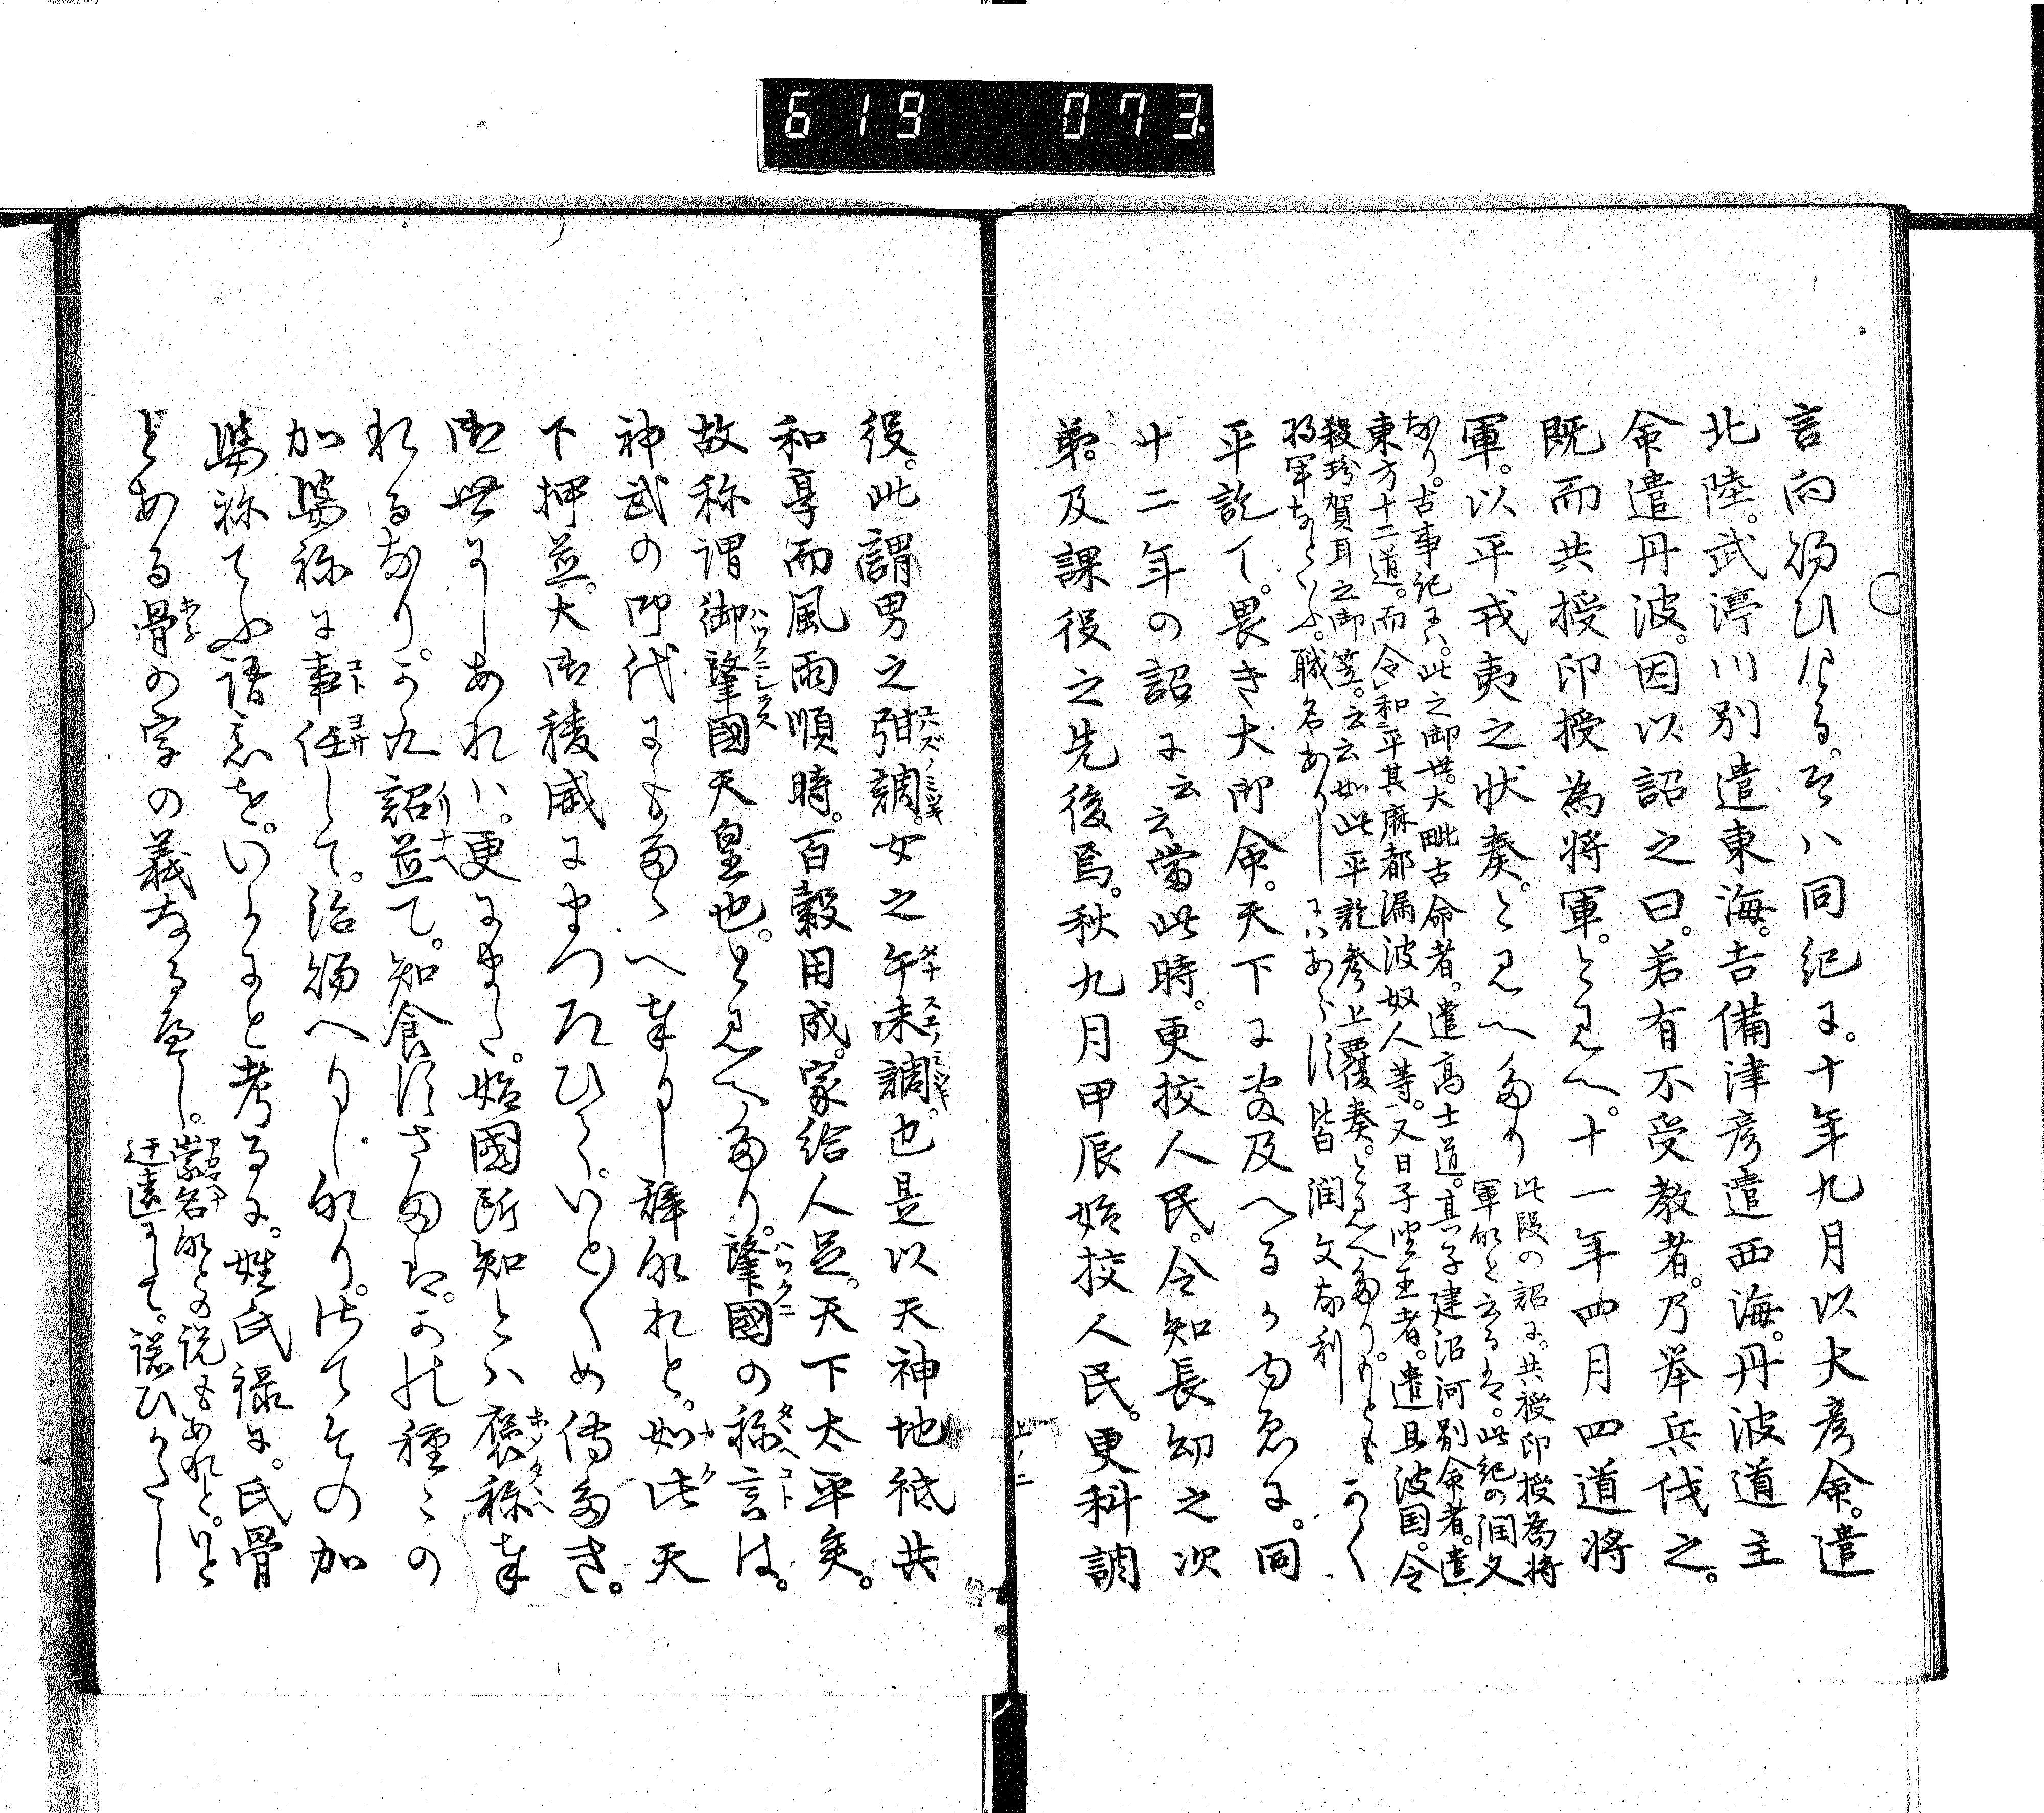 619 073
言向給ひける。そハ同紀に。十年九月以大彦命。遣
北陸。武渟川別遣東海。吉備津彦遣西海。丹波道主
命遣丹波。因以詔之曰。若有不受教者。乃挙兵伐之。
既而共授印授為将軍。と見へ。十一年四月四道将
軍。以平戎夷之状奏。と見へたり
此段の詔に。共授印授為将
軍などと云るは。此紀の潤文
なり。古事紀には。此之御世。大毗古命者。遣高士道。其子建沼河別命者。遣
東方十二道。而令和平其麻都漏波奴人等。又日子坐王者。遣且波国。令
殺玖賀耳之御笠。云云如此平訖参上覆奏。と見へたり。
将軍なといふ。職名ありしにハあらす皆潤文なり
かく
平訖て。畏き大御命。天下に及へるかゆゑに。同
十二年の詔に云云當此時。更挍人民。令知長幼之次
弟。及課役之先後焉。秋九月甲辰始挍人民。更科調
上ノ二
役。此謂男之弭調。女之手末調。也是以天神地祇共
和享而風雨順時。百穀用成。家給人足。天下太平矣。
故称謂御肇國天皇也。と見へたり。肇國の称言は。
神武の御代にもたゝへ奉りし称なれと。如此天
下押並。大御稜威にまつろひて。いとめ
御世にしあれハ。更にまた。始國所知とハ褒称奉
れるなり。かれ詔並て。知食すさまは。かの種々の
加婆祢に事任して。治給へりしなり。さてその加
婆祢てふ語意を。いかにと考るに。姓氏録に。氏骨
とある骨の字の義なるべし。
崇名などの説もあれと。いと
迂遠にして。諾ひかたし